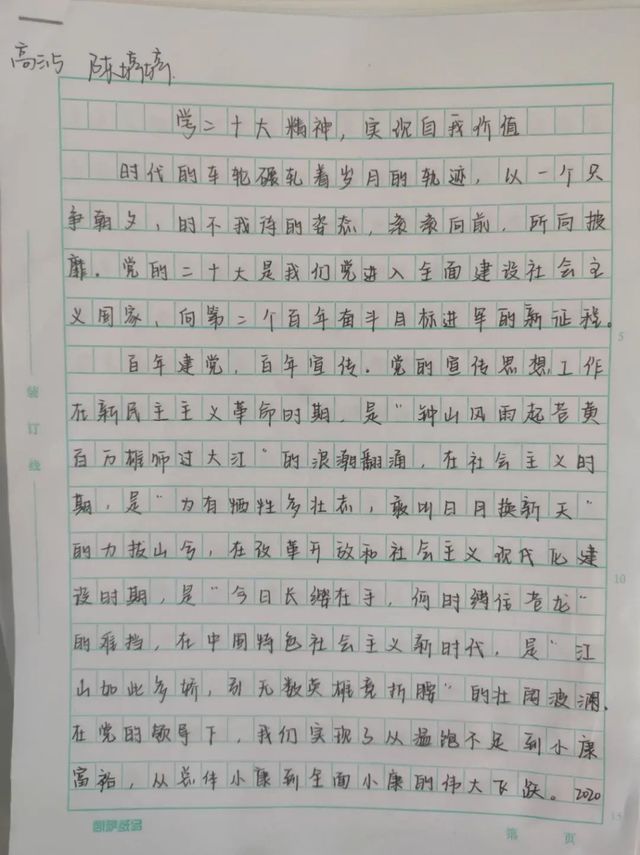 高沥 陈婷婷
学二十大精神，实现自我价值
时代的车轮碾轧着岁月的轨迹，以一个只
争朝夕、时不我待的姿态，滚滚向前，所向披
靡。党的二十大是我们党进入全面建设社会主
义国家、向第二个百年奋斗目标进军的新征程。
百年建党，百年宣传。党的宣传思想工作
在新民主主义革命时期，是“钟山风雨起苍黄
百万雄师过大江”的浪潮翻涌，在社会主义时
期，是“为有牺牲多壮志，敢叫日月换新天”
的力拔山兮，在改革开放和社会主义现代化建
设时期，是“今日长缨在手，何时缚住苍龙”
的难挡，在中国特色社会主义新时代，是“江
山如此多娇，引无数英雄竞折腰”的壮阔波澜。
在党的领导下，我们实现了从温饱不足到小康
富裕，从总体小康到全面小康的伟大飞跃。2020
装订线
5
10
15
第 页